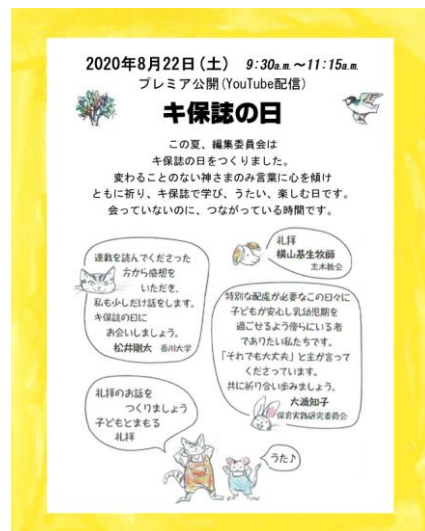 2020年8月22日(土) 9:30a.m.～11:15a.m.
プレミア公開(YouTube配信)
キ保誌の日
この夏、編集委員会は
キ保誌の日をつくりました。
変わることのない神さまのみ言葉に心を傾け
ともに祈り、キ保誌で学び、うたい、楽しむ日です。
会っていないのに、つながっている時間です。
連載を読んでくださった
方から感想を
いただき、
私も少しだけ話をします。
キ保誌の日に
お会いしましょう。
松井剛太 香川大学
礼拝
横山基生牧師
志木教会
特別な配慮が必要なこの日々に
子どもが安心し乳幼児期を
過ごせるよう傍らにいる者
でありたい私たちです。
「それでも大丈夫」と主が言って
くださっています。
共に祈り合い歩みましょう。
大渡知子
保育実践研究委員会
礼拝のお話を
つくりましょう
子どもとまもる
礼拝
うた♪